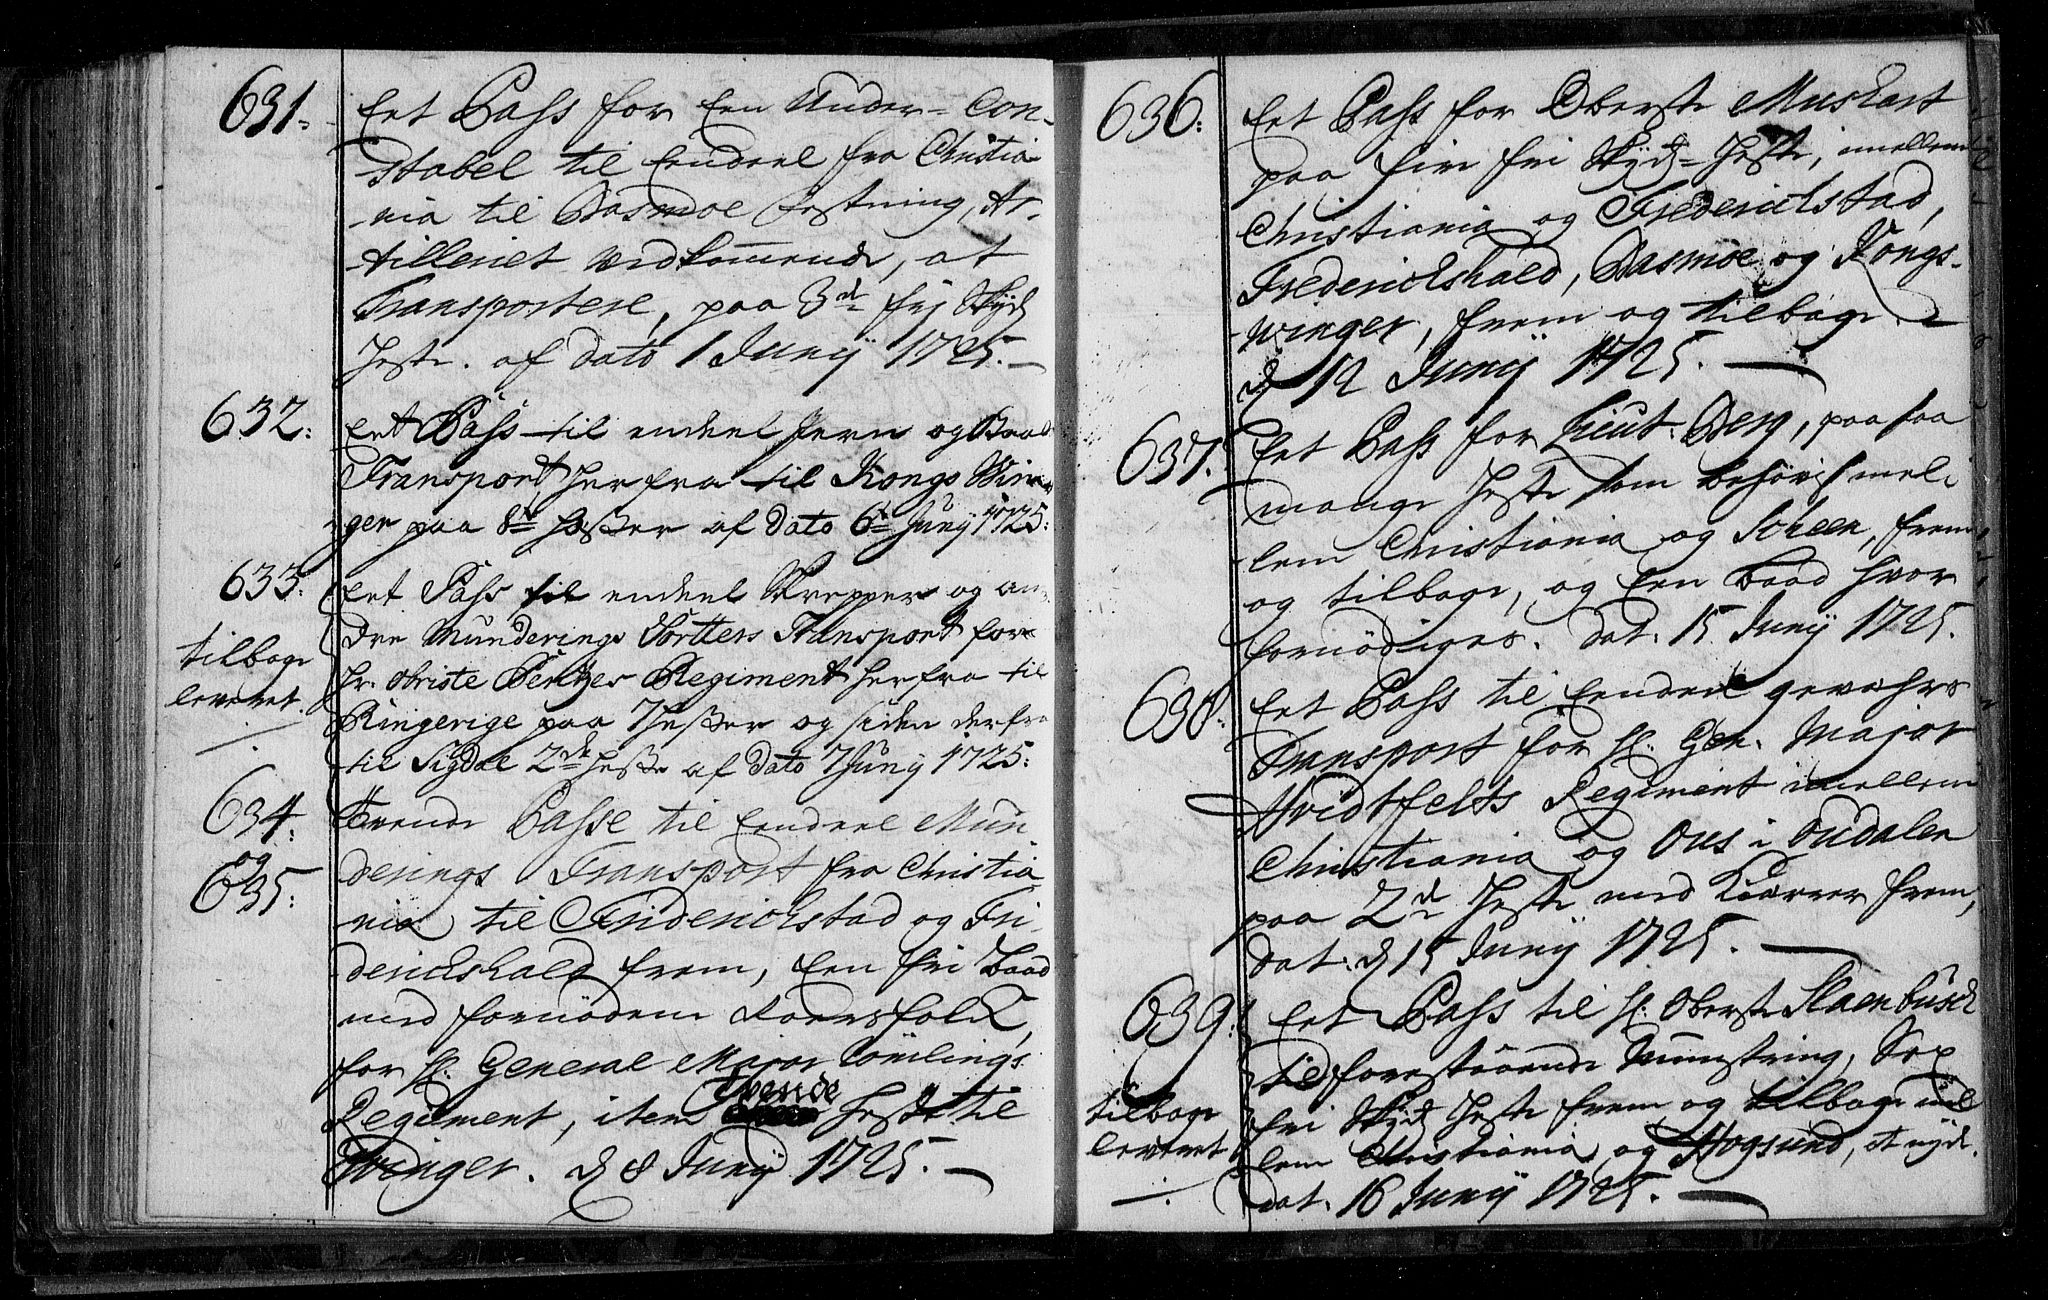 631.
Eet Pass for Een Under-Con-
stabel til Eendeel fra Christia-
nia til Basmoe Festning, Ar-
tilleriet vedkommende, at
Transportere, paa 3de frj Skyds
Heste. af dato 1 Junij 1725.
632:
Eet Pass til endeel Jern og Staal
Transport, herfra til Kongs Win-
ger paa 8te Hester af Dato 6te Junij 1725:
633:
tilbage
leveret
Eet Pass til endeel Skrepper og an-
dre Munderings Sorters Transport for
Hr. Obriste Bentzes Regiment herfra til
Ringerige paa 7 Hester og siden derfra
til Sigdal 2de Heste af Dato 7 Junij 1725:
634:
og
635:
Trende Passe til Eendeel Mun-
derings Transport fra Christia-
nia til Friderichstad og Fri-
derichshald frem, Een fri Baad
med fornøden Roersfolk,
for H. General Major Cömlings
Regiment, item Trende Heste til
Winger. d 8 Junij 1725.
636:
Eet Pass for Oberste Mushart
paa fire fri Skyds-Heste, imellem
Christiania og Frederichstad,
Frederichshald, Basmoe og Kongs-
winger, frem og tilbage.
d 12 Junij 1725.
637.
Eet Pass for Lieut. Berg, paa saa
mange Heste som behøves mel-
lem Christiania og Scheen, frem
og tilbage, og Een Baad hvor
fornödiges. dat: 15 Junij 1725.
638:
Eet Pass til Eendeel gevæhrs
Transport for H. Gen. Major
Hvidtfelts Regiment imellem
Christiania og Ous i Oudalen
paa 2de Heste med Kierrer frem,
dat: d 15 Junij 1725.
639:
tilbage
leveret
Eet Pass til H. Oberste Staenbüsch
til forestaaende Munstring, Sex
fri Skyds Heste frem og tilbage mel-
lem Christiania og Hogsund, at nyde.
dat. 16 Junij 1725.